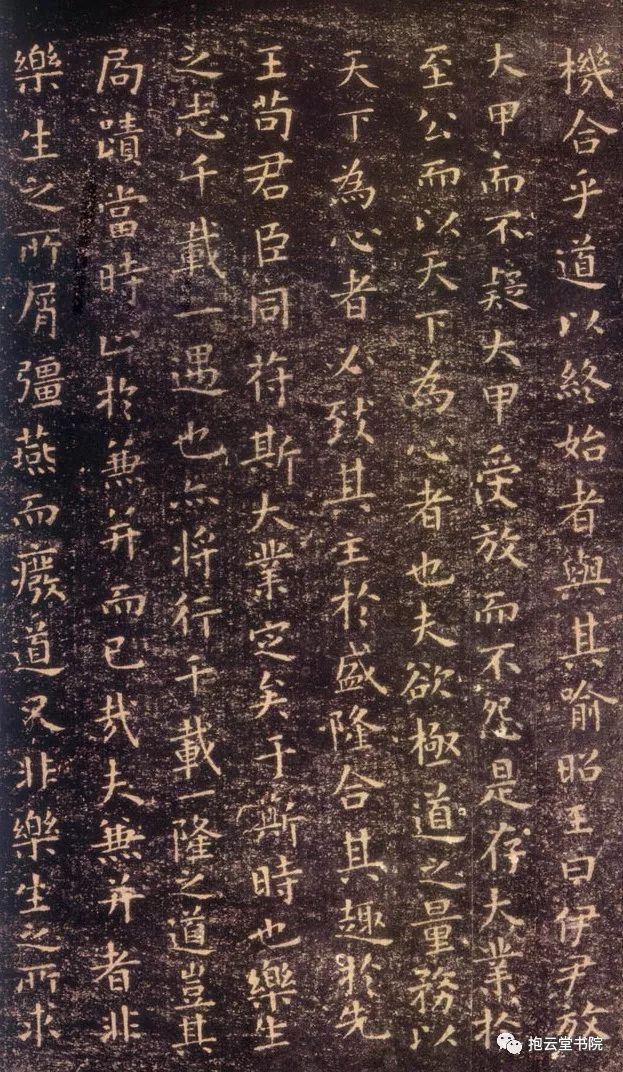 機合乎道以終始者與其喻昭王曰伊尹放
大甲而不疑大甲受放而不怨是存大業於
至公而以天下為心者也夫欲極道之量務以
天下為心者必致其主於盛隆合其趣於先
王苟君臣同符斯大業定矣于斯時也樂生
之志千載一遇也亦將行千載一隆之道豈其
局蹟當時止於兼并而已哉夫兼并者非
樂生之所屑彊燕而癈道又非樂生之所求
抱云堂书院